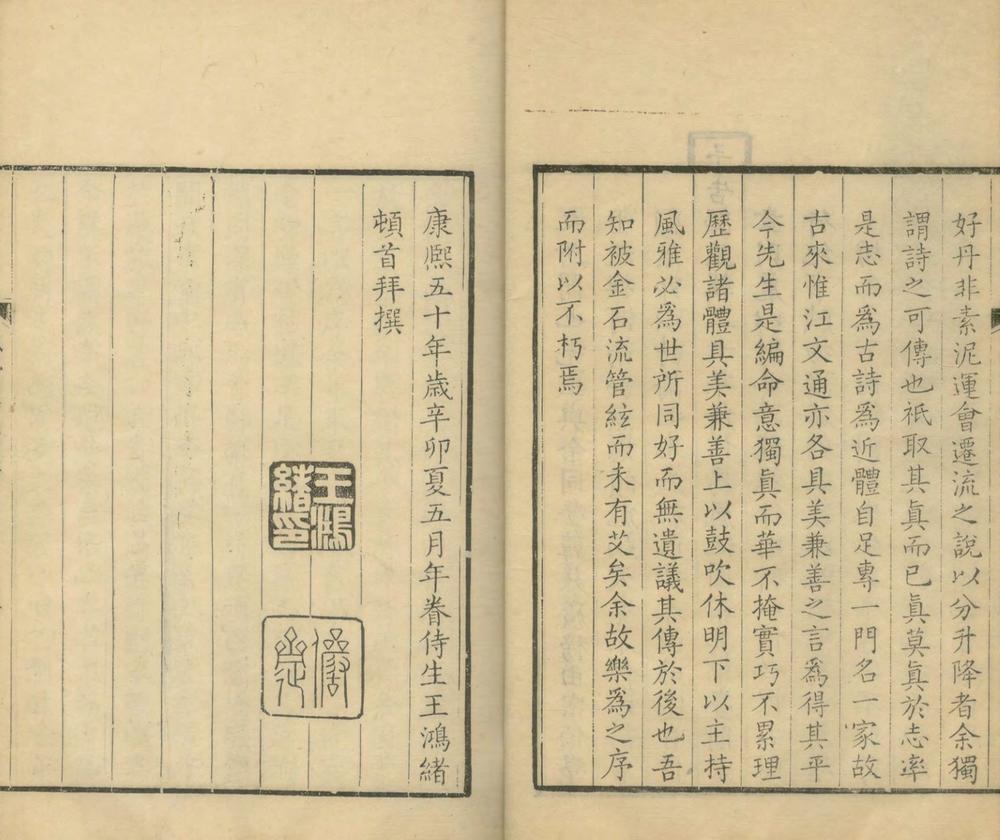 好丹非素泥運會遷流之說以分升降者余獨
謂詩之可傳也祇取其真而已真莫真於志率
是志而為古詩為近體自足專一門名一家故
古來惟江文通亦各具美兼善之言為得其平
今先生是編命意獨真而華不掩實巧不累理
歷觀諸體具美兼善上以鼓吹休明下以主持
風雅必為世所同好而無遺議其傳於後也吾
知被金石流管絃而未有艾矣余故樂為之序
而附以不朽焉
康熙五十年歲辛卯夏五月年眷侍生王鴻緒
頓首拜撰
王鴻緒印
儼齋